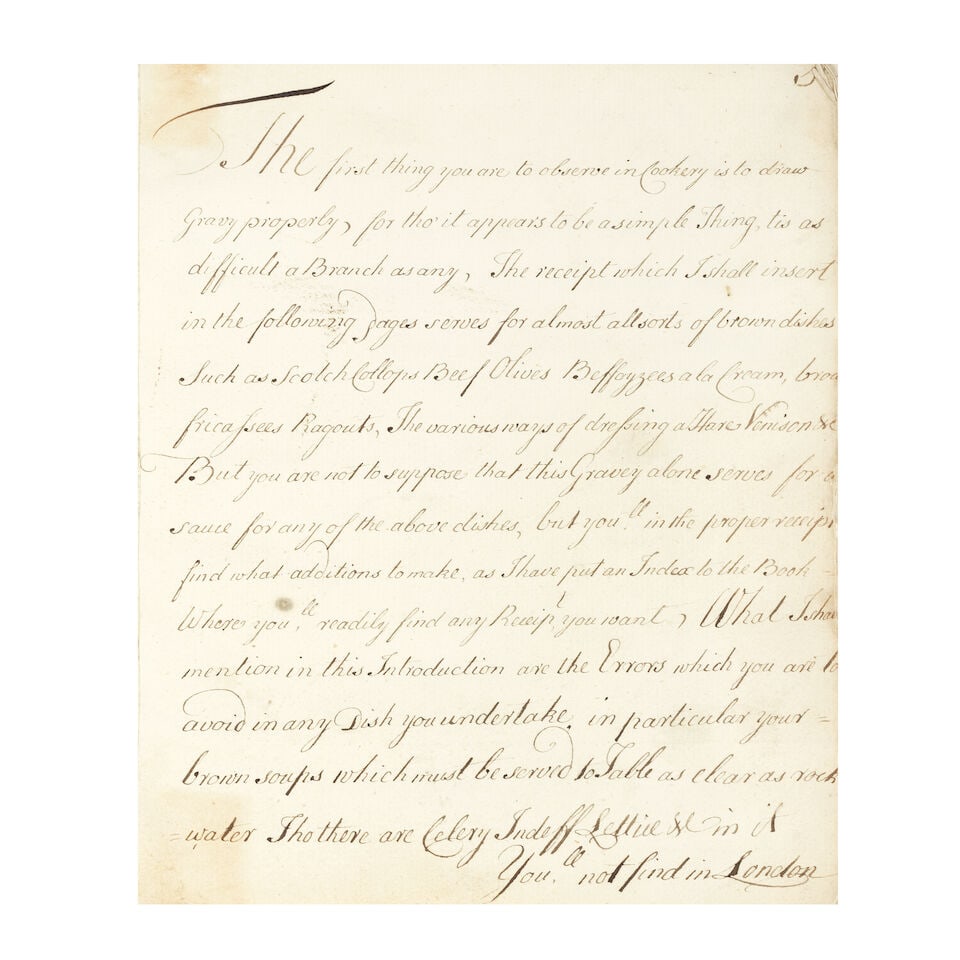 5
The first thing you are to observe in Cookery is to draw
Gravy properly, for tho' it appears to be a simple Thing, tis as
difficult a Branch as any, The receipt which I shall insert
in the following Pages serves for almost all sorts of brown dishes
Such as Scotch Collops Beef Olives Beffoyzees a la Cream, brow
fricassees Ragouts, The various ways of dressing a Hare Venison &c
But you are not to suppose that this Gravey alone serves for a
sauce for any of the above dishes, but you'll in the proper receipt
find what additions to make, as I have put an Index to the Book -
Where you'll readily find any Receipt you want, What I shall
mention in this Introduction are the Errors which you are to
avoid in any Dish you undertake, in particular your =
brown soups which must be served to Table as clear as rock
=water Tho there are Celery Indeff Lettice &c in it
You'll not find in London